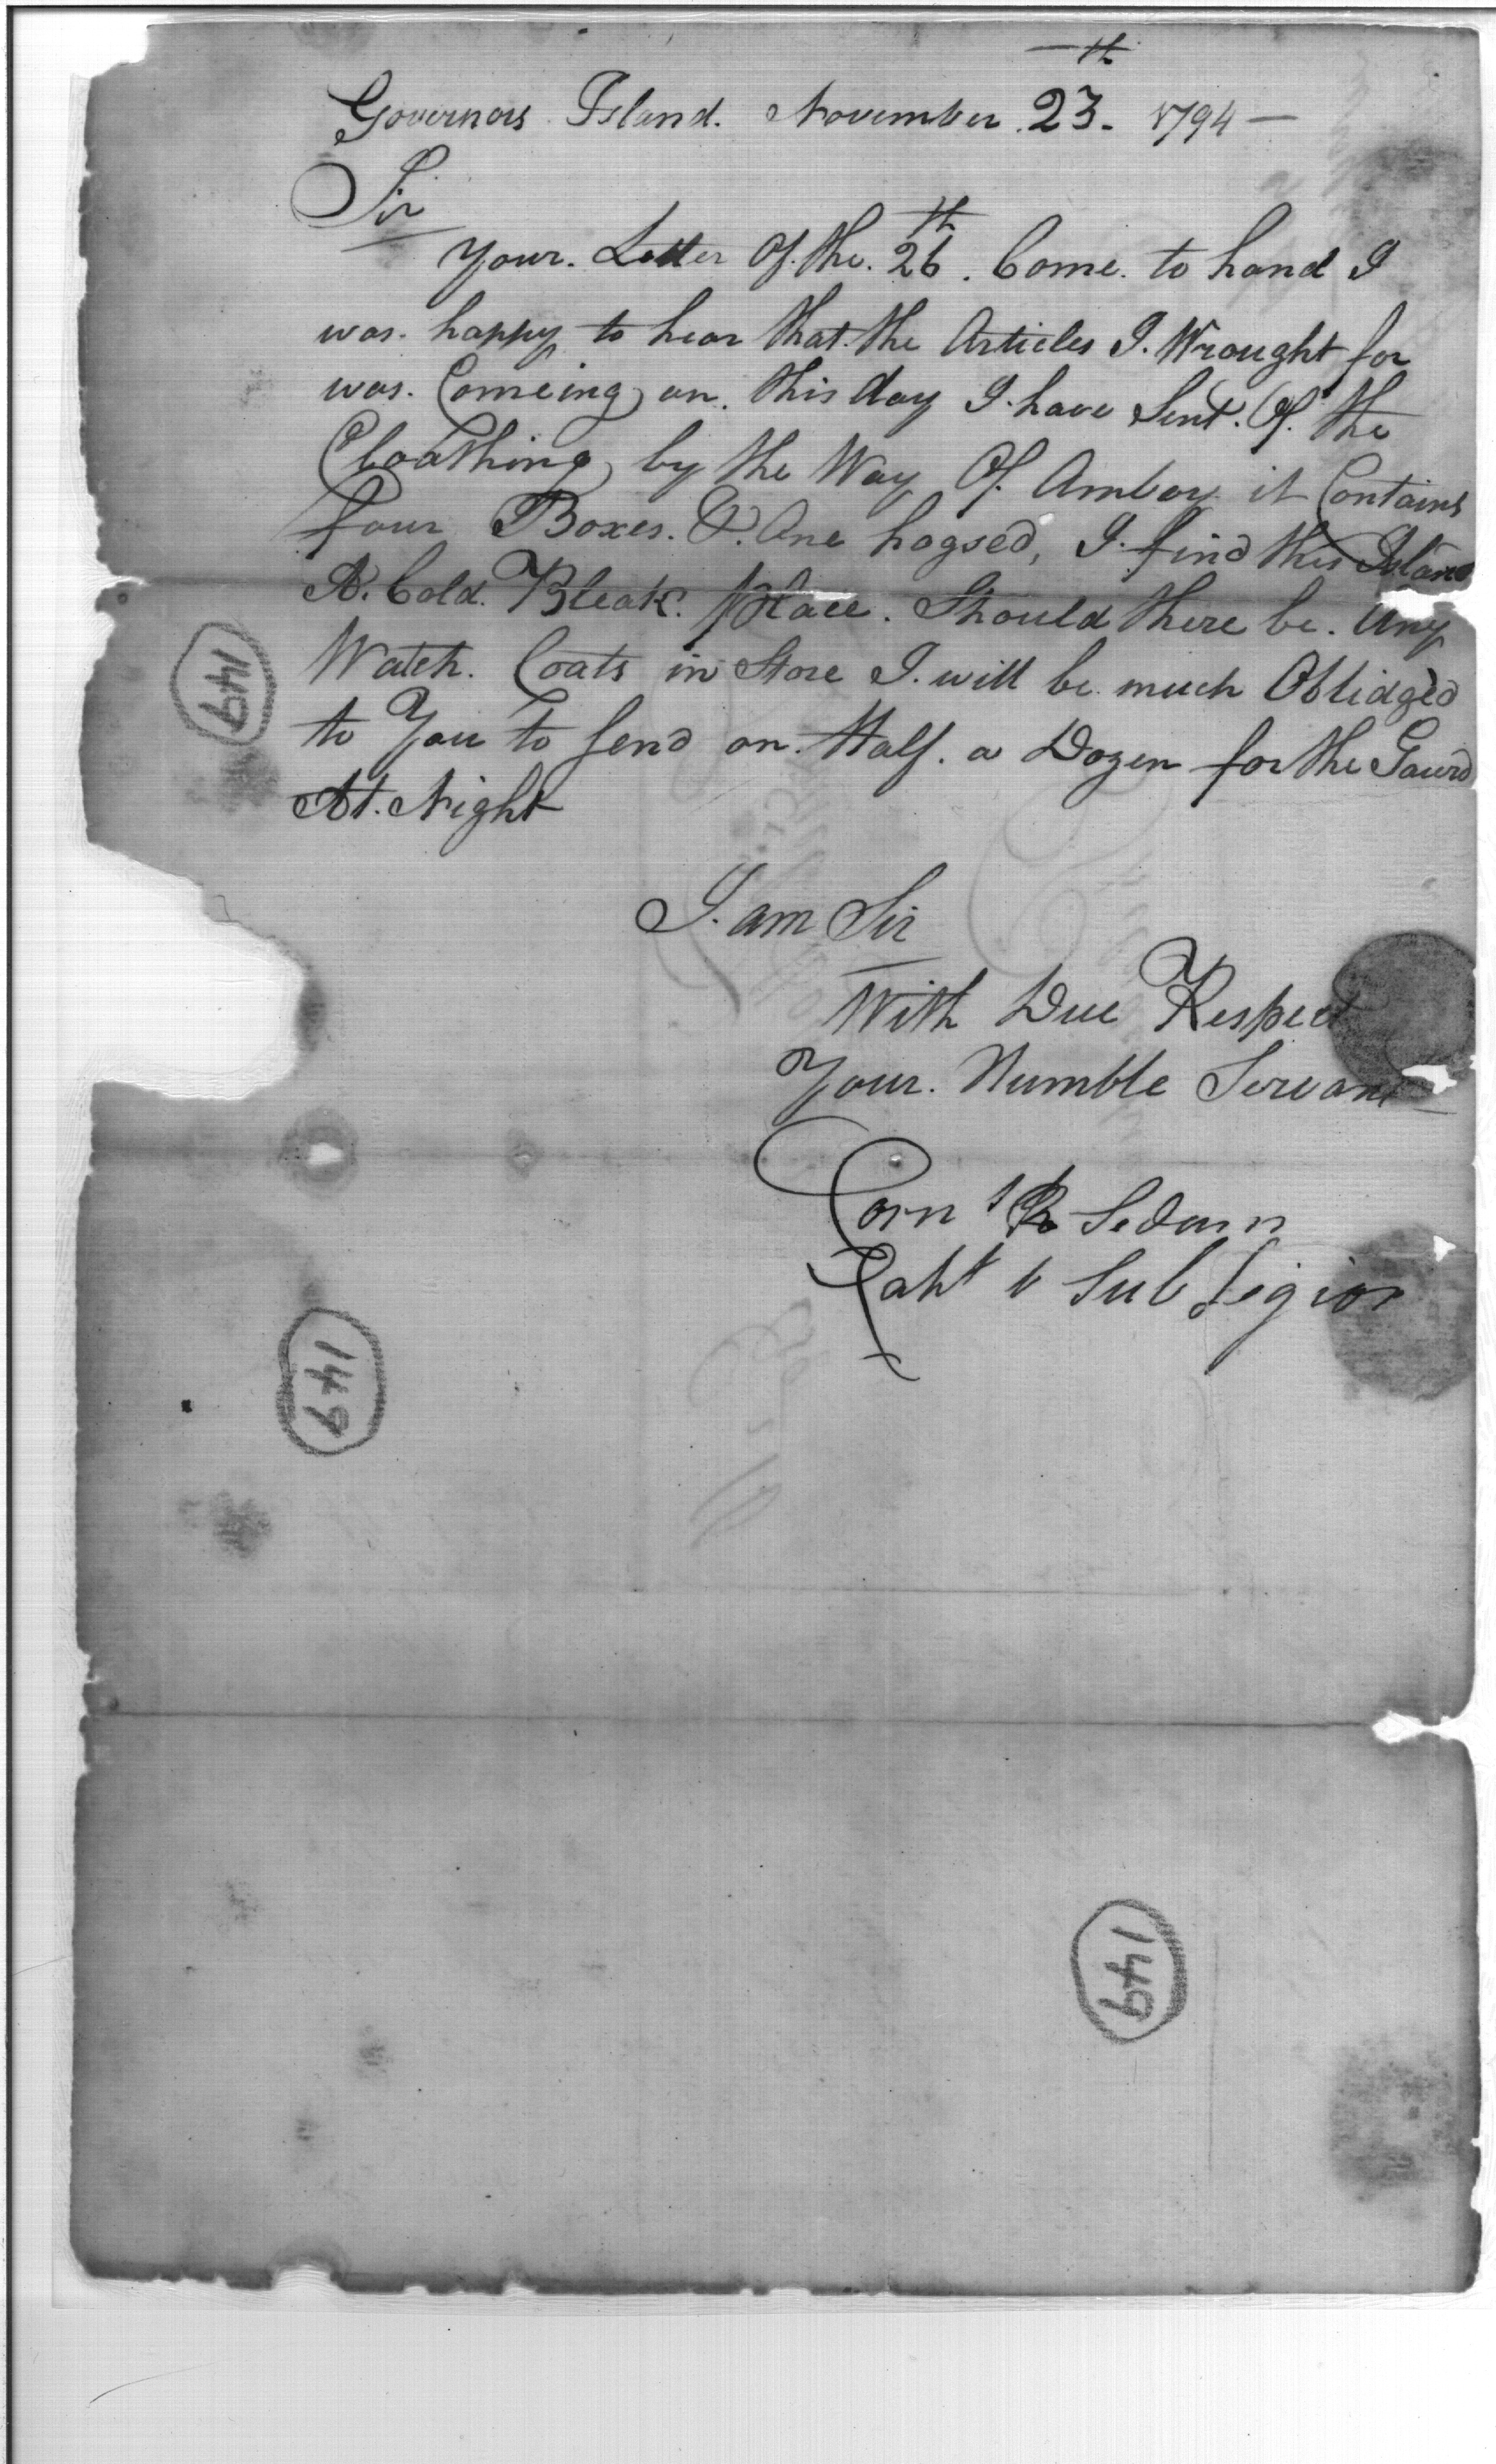 Governors Island. November 23th. 1794 —
Sir
Your. Letter Of. the. 26th. Came. to hand I
was. happy to hear that. the Articles I. Wrought for
was. Comeing on. this day I. have Sent. Of. the
Cloathing by the Way Of. Amboy it Contains
four Boxes. &. One hogsed, I. find this Island
A. Cold. Bleak. place. Should there be. Any
Watch. Coats in Store I. will be. much Oblidged
to You to Send on. Half. a Dozen for the Gaurd
At. Night
I. am Sir
With Due Respect
Your. Humble Servant
Corns R Sedam
Capt Sub Legion
149
149
149